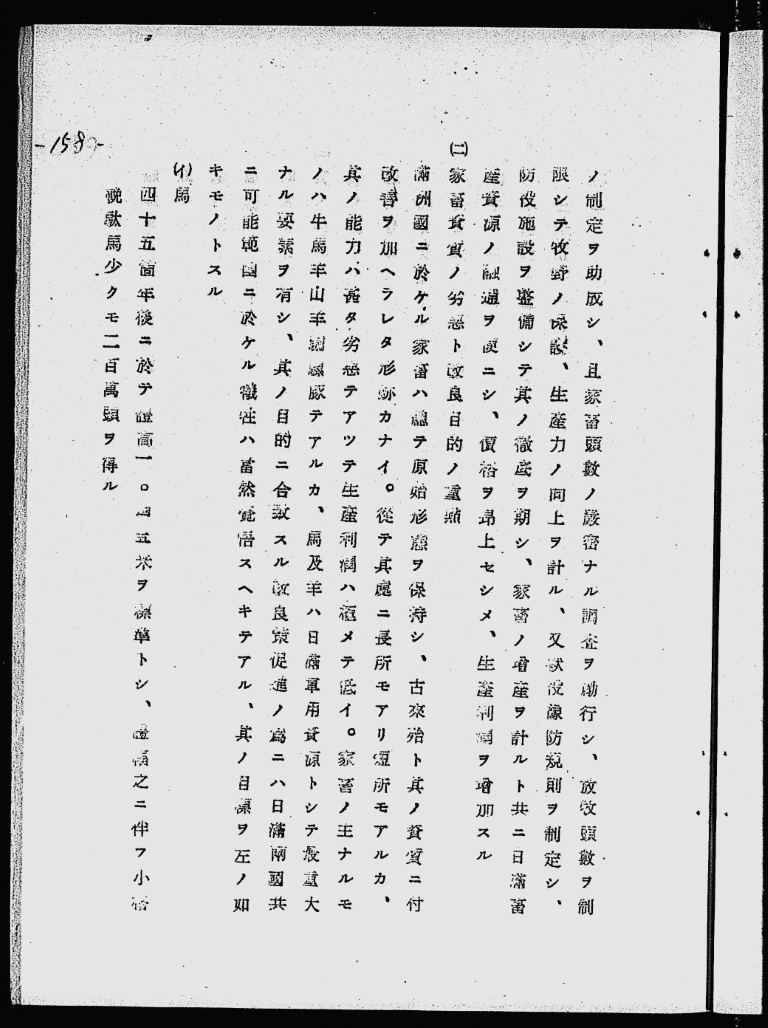 ノ制定ヲ助成シ、且家畜頭數ノ嚴密ナル調査ヲ勵行シ、放牧頭數ヲ制
限シテ牧野ノ保護、生産力ノ向上ヲ計ル、又獸疫豫防規則ヲ制定シ、
防疫施設ヲ整備シテ其ノ徹底ヲ期シ、家畜ノ增産ヲ計ルト共ニ日滿畜
産資源ノ融通ヲ便ニシ、價格ヲ昻上セシメ、生産利潤ヲ增加スル
㈡ 家畜資質ノ劣惡ト改良目的ノ重點
滿洲國ニ於ケル家畜ハ總テ原始形態ヲ保持シ、古來殆ト其ノ資質ニ付
改善ヲ加ヘラレタ形跡カナイ。從テ其處ニ長所モアリ短所モアルカ、
其ノ能力ハ甚タ劣惡テアツテ生産利潤ハ極メテ低イ。家畜ノ主ナルモ
ノハ牛馬羊山羊豚テアルカ、馬及羊ハ日滿軍用資源トシテ最重大
ナル要素ヲ有シ、其ノ目的ニ合致スル改良策促進ノ爲ニハ日滿兩國共
ニ可能範圍ニ於ケル犧牲ハ當然覺悟スヘキテアル、其ノ目標ヲ左ノ如
キモノトスル
(イ)馬
四十五箇年後ニ於テ體高一。四五米ヲ標準トシ、體幅之ニ伴フ小格
輓馱馬少クモ二百萬頭ヲ得ル
-158-